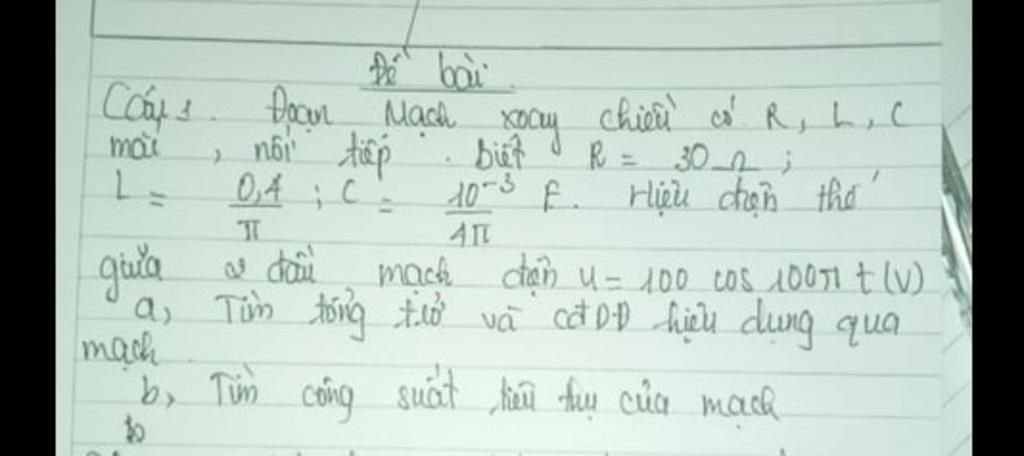 Đề bài.
Câu 1. Đoạn Mạch xoay chiều có R, L, C
mắc, nối tiếp. Biết R = 30 Ω;
L = 0,4/π ; C = 10⁻³/4π F. Hiệu điện thế
giữa 2 đầu mạch điện u = 100 cos 100π t (V)
a, Tìm tổng trở và CĐDĐ hiệu dụng qua
mạch.
b, Tìm công suất tiêu thụ của mạch